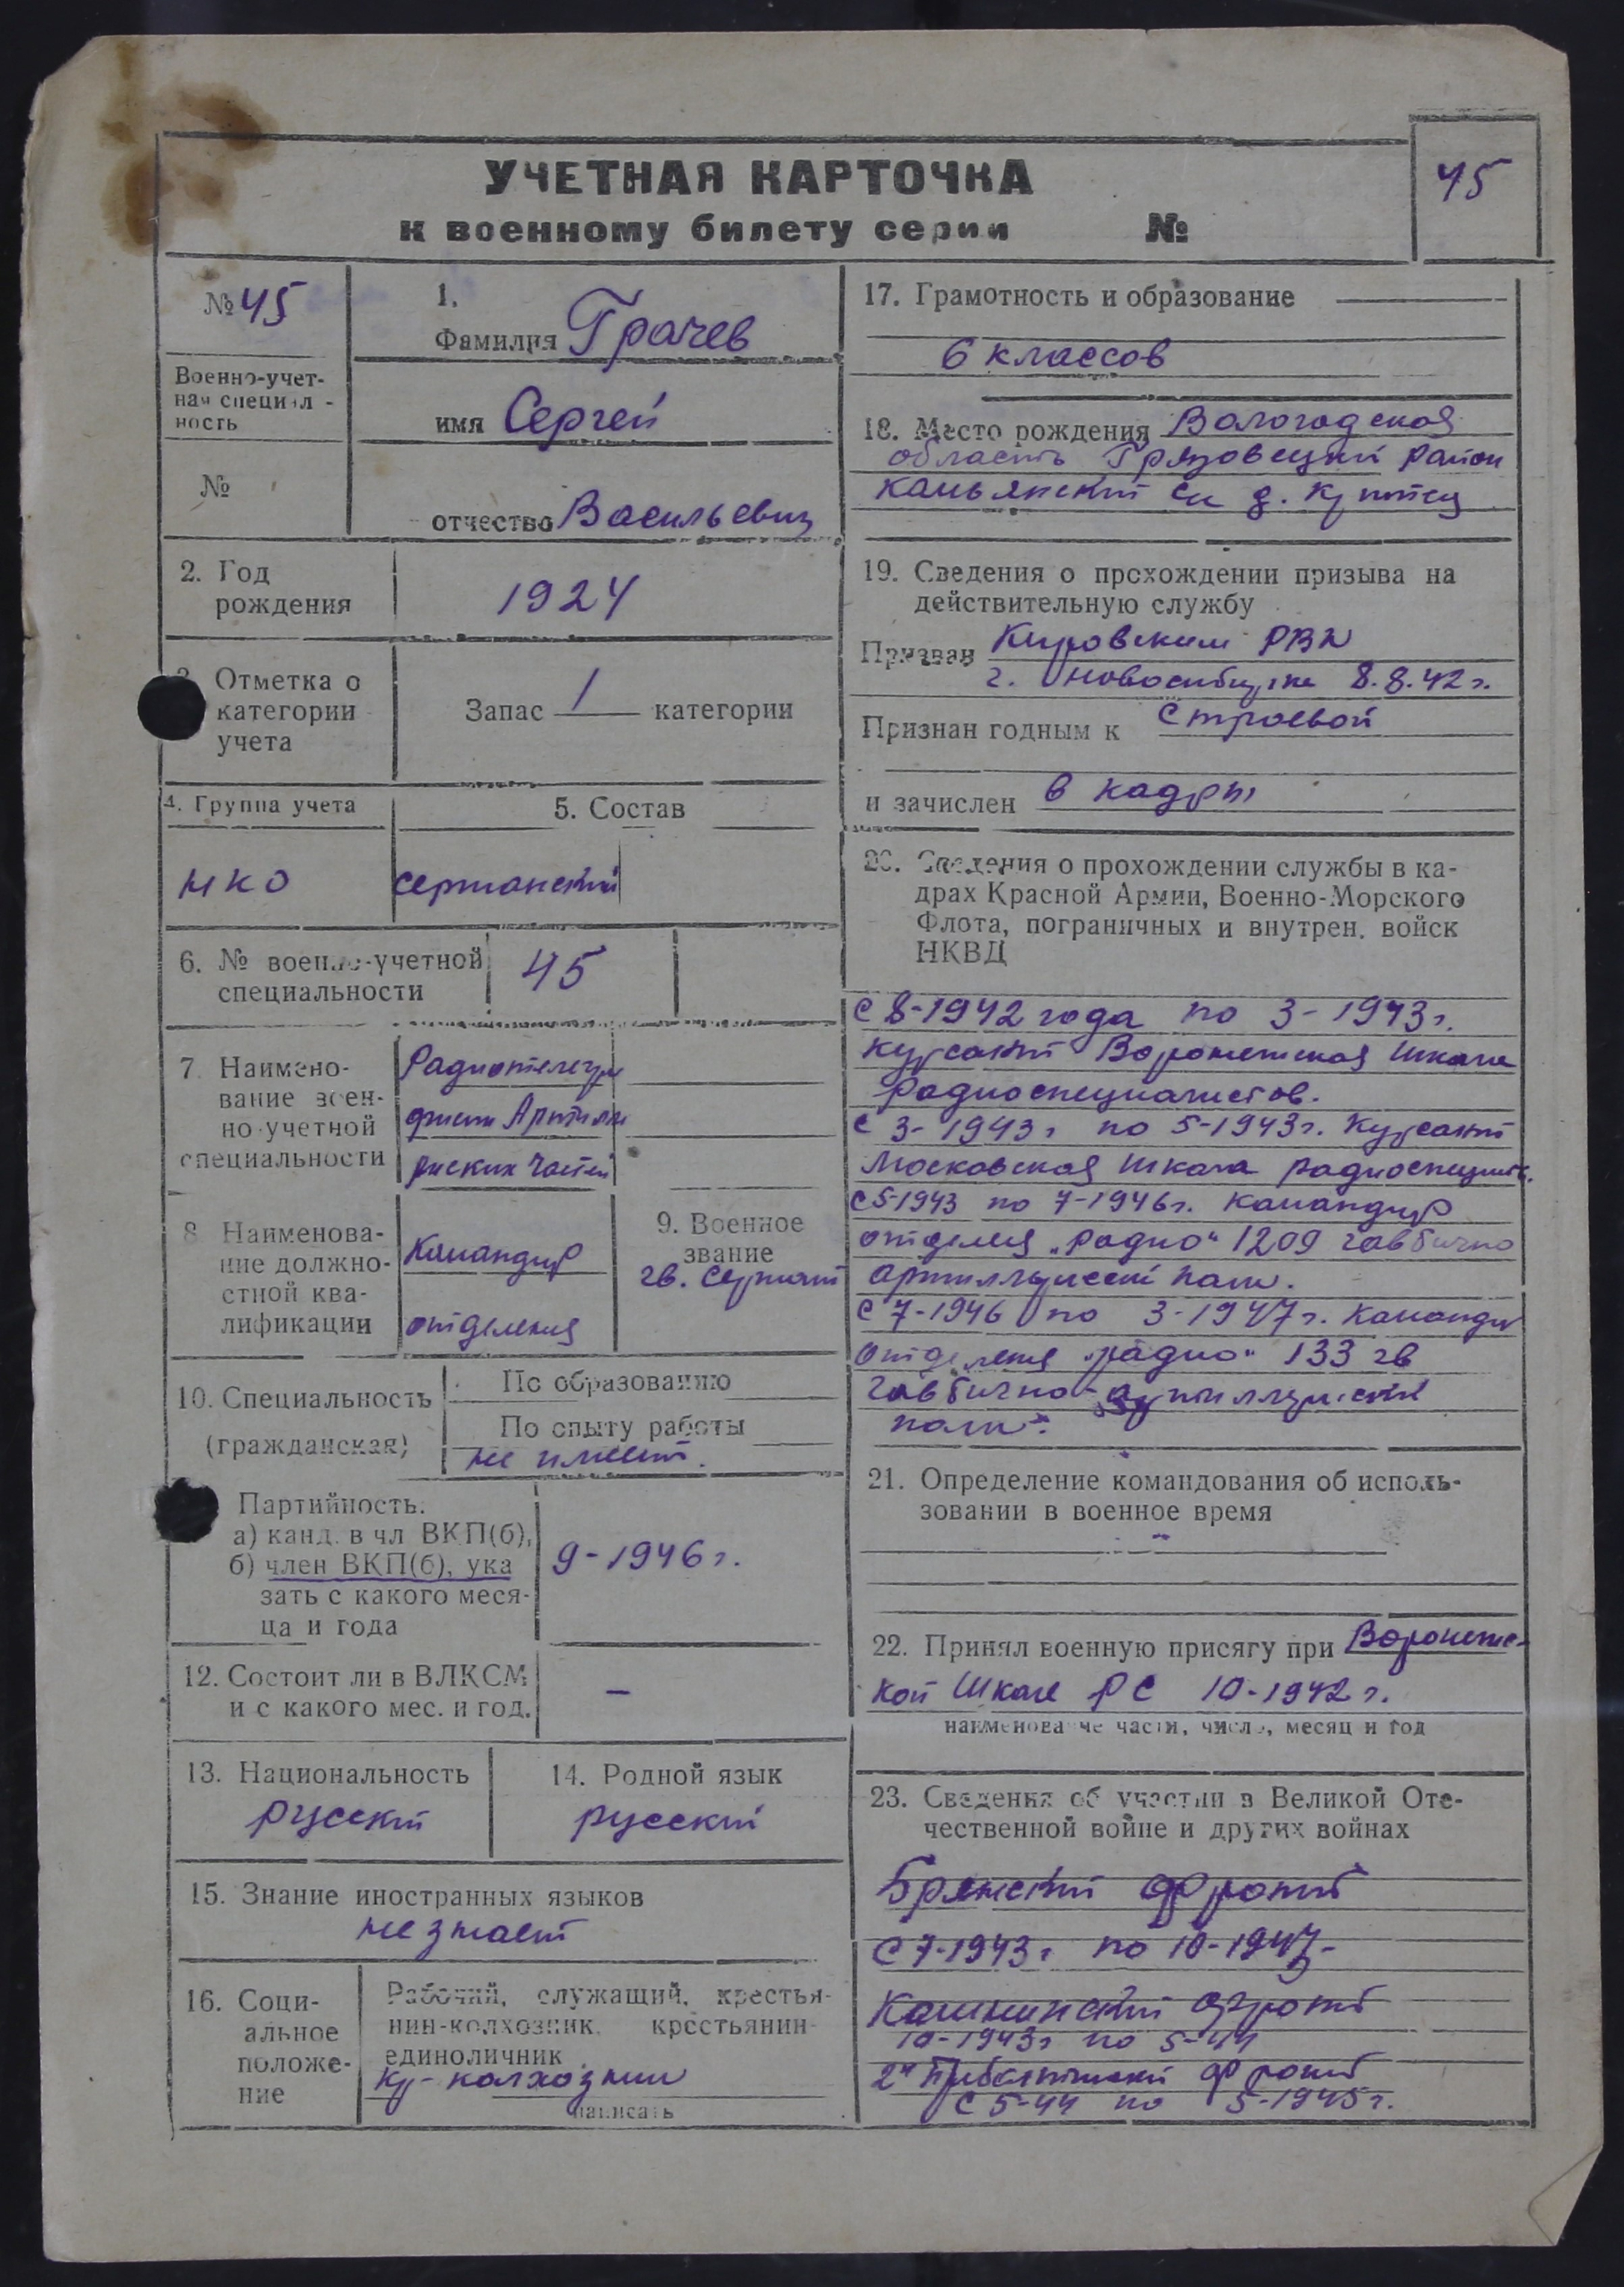 УЧЕТНАЯ КАРТОЧКА
к военному билету серии №
45
№ 45
Военно-учет-
ная специал-
ность
№
1.
Фамилия Грачев
имя Сергей
отчество Васильевич
2. Год
рождения
1924
3. Отметка о
категории
учета
Запас 1 категории
4. Группа учета
НКО
5. Состав
сержанский
6. № военно-учетной
специальности
45
7. Наимено-
вание воен-
но-учетной
специальности
Радиотелегра
фист Артилле
рийских частей
8. Наименова-
ние должно-
стной ква-
лификации
Командир
отделения
9. Военное
звание
гв. Сержант
10. Специальность
(гражданская)
По образованию
По опыту работы
не имеет.
Партийность.
а) канд. в чл ВКП(б),
б) член ВКП(б), ука
зать с какого меся-
ца и года
9-1946 г.
12. Состоит ли в ВЛКСМ
и с какого мес. и год.
–
13. Национальность
русский
14. Родной язык
русский
15. Знание иностранных языков
не знает
16. Соци-
альное
положе-
ние
Рабочий, служащий, крестья-
нин-колхозник, крестьянин-
единоличник
кр-колхозник
написать
17. Грамотность и образование
6 классов
18. Место рождения Вологодская
область Грязовецкий район
с д.
19. Сведения о прохождении призыва на
действительную службу
Призван Кировским РВК
г. Новосибирска 8.8.42 г.
Признан годным к строевой
и зачислен в кадры
20. Сведения о прохождении службы в ка-
драх Красной Армии, Военно-Морского
Флота, пограничных и внутрен. войск
НКВД
с 8-1942 года по 3-1943 г.
курсант Воронежская школа
радиоспециалистов.
с 3-1943 г по 5-1943 г. Курсант
Московская школа радиоспециал.
с 5-1943 по 7-1946 г. Командир
отделен „радио" 1209 гаубично
артиллерийский полк.
с 7-1946 по 3-1947 г. Командир
отделения „радио" 133 гв
гаубично-артиллерийский
полк.
21. Определение командования об исполь-
зовании в военное время
–
22. Принял военную присягу при Воронежс-
кой школе РС 10-1942 г.
наименование части, число, месяц и год
23. Сведения об участии в Великой Оте-
чественной войне и других войнах
Брянский фронт
с 7-1943 г по 10-1943
Калининский фронт
10-1943 г по 5-44
2й Прибалтийский фронт
с 5-44 по 5-1945 г.